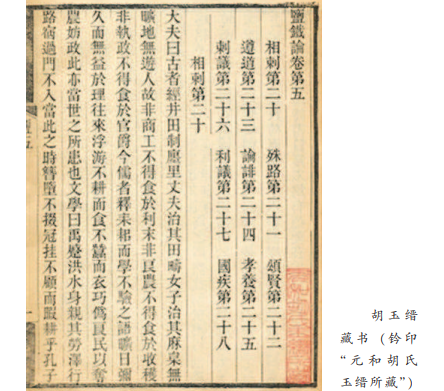 鹽鐵論卷第五
相刺第二十 殊路第二十一 頌賢第二十二
遵道第二十三 論誹第二十四 孝養第二十五
刺議第二十六 利議第二十七 國疾第二十八
相刺第二十
大夫曰古者經井田制廛里丈夫治其田疇女子治其麻枲無
曠地無遊人故非商工不得食於利末非良農不得食於收穫
非執政不得食於官爵今儒者釋耒耜而學不驗之語曠日彌
久而無益於理往來浮游不耕而食不蠶而衣巧僞良民以奪
農妨政此亦當世之所患也文學曰禹蹙洪水身親其勞澤行
路宿過門不入當此之時簪墮不掇冠挂不顧而暇耕乎孔子
胡玉缙
藏书（钤印
“元和胡氏
玉缙所藏”）